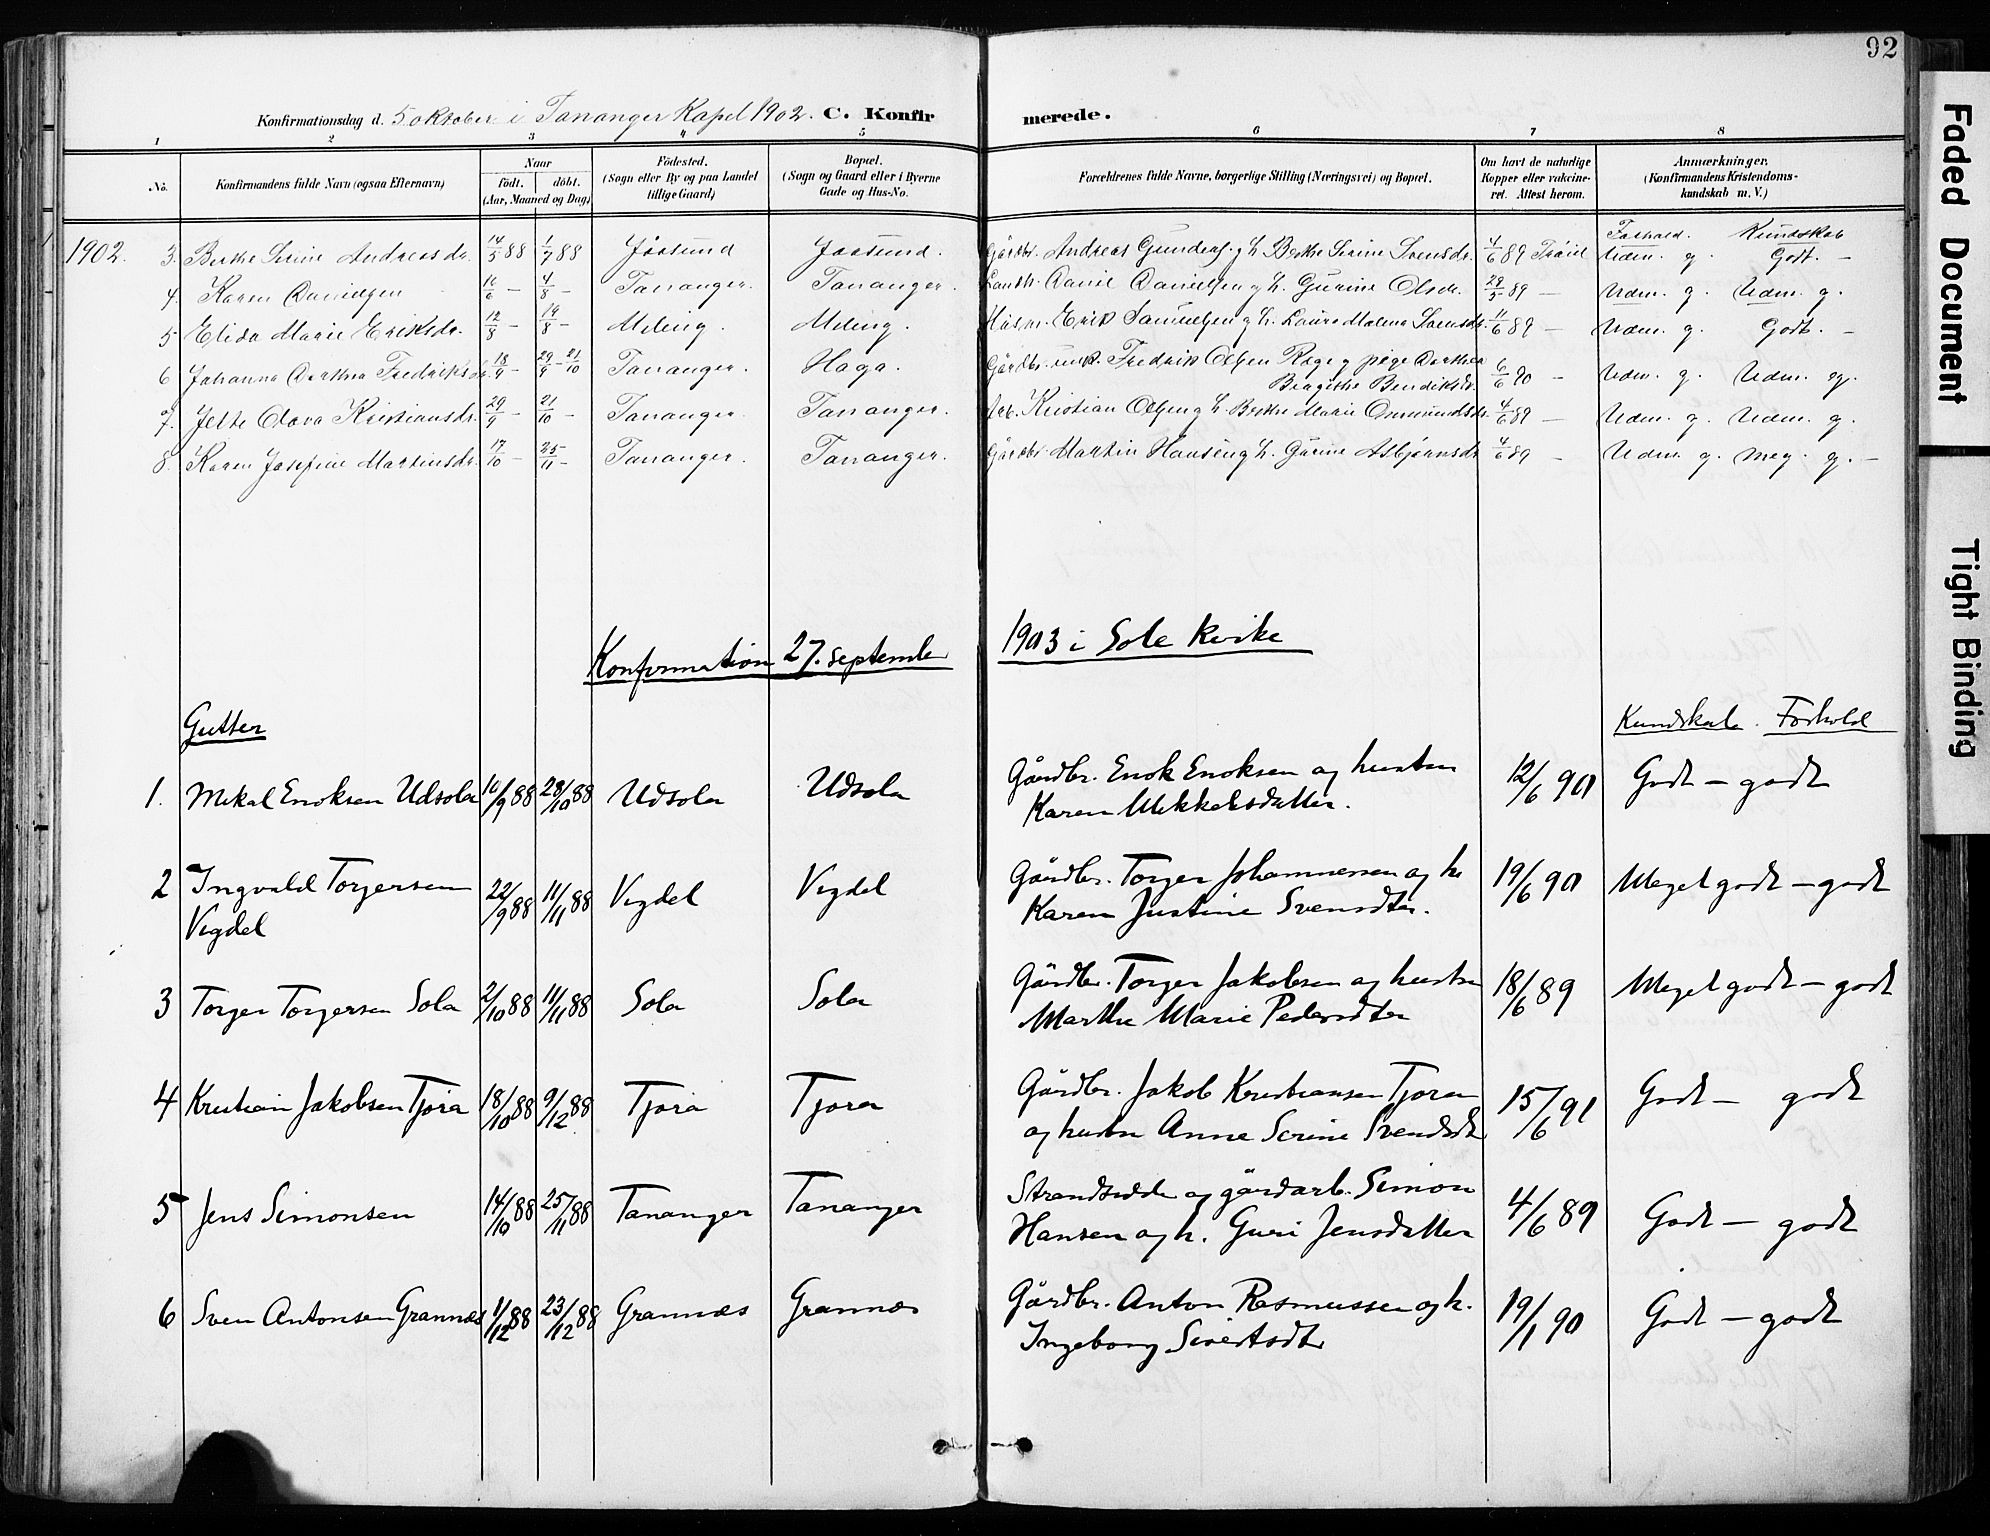 92
Konfirmationsdag d. 5 oktober i Tananger Kapel 1902. C. Konfir merede.
1 2 3 4 5 6 7 8
No. Konfirmandens fulde Navn (ogsaa Efternavn) Naar födt. döbt. (Aar, Maaned og Dag) Födested. (Sogn eller By og paa Landet tillige Gaard) Bopæl. (Sogn og Gaard eller i Byerne Gade og Hus-No. Forældrenes fulde Navne, borgerlige Stilling (Næringsvei) og Bopæl. Om havt de naturlige Kopper eller vakcineret. Attest herom. Anmærkninger. (Konfirmandens Kristendomskundskab m. V.)
Forhold. Kundskab
1902. 3. Berthe Serine Andreasdr. 14/5 88 1/7 88 Jåsund Jåsund. Gårdbr. Andreas Gunders. g h. Berthe Serine Svensdr. 4/6 89 Tråiel Udm. g. Godt. -
4. Karen Danielsen 10/6 - 4/8 - Tananger. Tananger. Daniel Danielsen g h. Gurine Olsdr. 29/5 89 - Udm. g. Udm. g.
5 Elida Marie Eriksdr. 12/8 - 19/8 - Meling. Meling. Husm. Erik Samuelsen g h. Laura Malena Svensdr. 11/6 89 - Udm. g. Godt. -
6 Johanna Dorthea Fredriksdr. 18/9 - 29/9 - 21/10 Tananger. Haga. Gårdbr. Fredrik Olsen Rege g pige Dorthea
Bragithe Bendiksdr. 6/6 90 - Udm. g. Udm. g.
7. Jette Olava Kristiansdr. 29/9 - 21/10 - Tananger. Tananger. Arb. Kristian Olsen g h. Berthe Marie Osmundsdr. 4/6 89 - Udm. g. Udm. g.
8. Karen Josefine Martinsdr. 17/10 - 25/11 - Tananger. Tananger. Gårdbr. Martin Hansen g h. Gurine Asbjørnsdr. 4/6 89 - Udm. g. meg. g. -
Konfirmation 27. september 1903 i Sole kirke
Gutter Kundskab. Forhold
1. Mikal Enoksen Udsola 10/9 88 28/10 88 Udsola Udsola Gårdbr. Enok Enoksen og hustru
Karen Mikkelsdatter. 12/6 90 Godt - godt
2 Ingvald Torgersen
Vigdel 22/9 88 11/11 88 Vigdel Vigdel Gårdbr. Torger Johannesen og h.
Karen Justine Svensdtr. 19/6 90 Meget godt - godt
3 Torger Torgersen Sola 2/10 88 11/11 88 Sola Sola Gårdbr. Torger Jakobsen og hustru
Marthe Marie Pedersdtr 18/6 89 Meget godt - godt
4 Kristian Jakobsen Tjora 18/10 88 9/12 88 Tjora Tjora Gårdbr. Jakob Kristiansen Tjora
og hustru Anne Serine Svendsdtr 15/6 91 Godt - godt
5 Jens Simonsen 14/10 88 25/11 88 Tananger Tananger Strandsidder og gårdarb. Simon
Hansen og h. Guri Jensdatter 4/6 89 Godt - godt
6 Sven Antonsen Grannes 1/12 88 23/12 88 Grannes Grannes Gårdbr. Anton Rasmussen og h.
Ingeborg Sivertsdtr 19/1 90 Godt - godt
Faded Document
Tight Binding